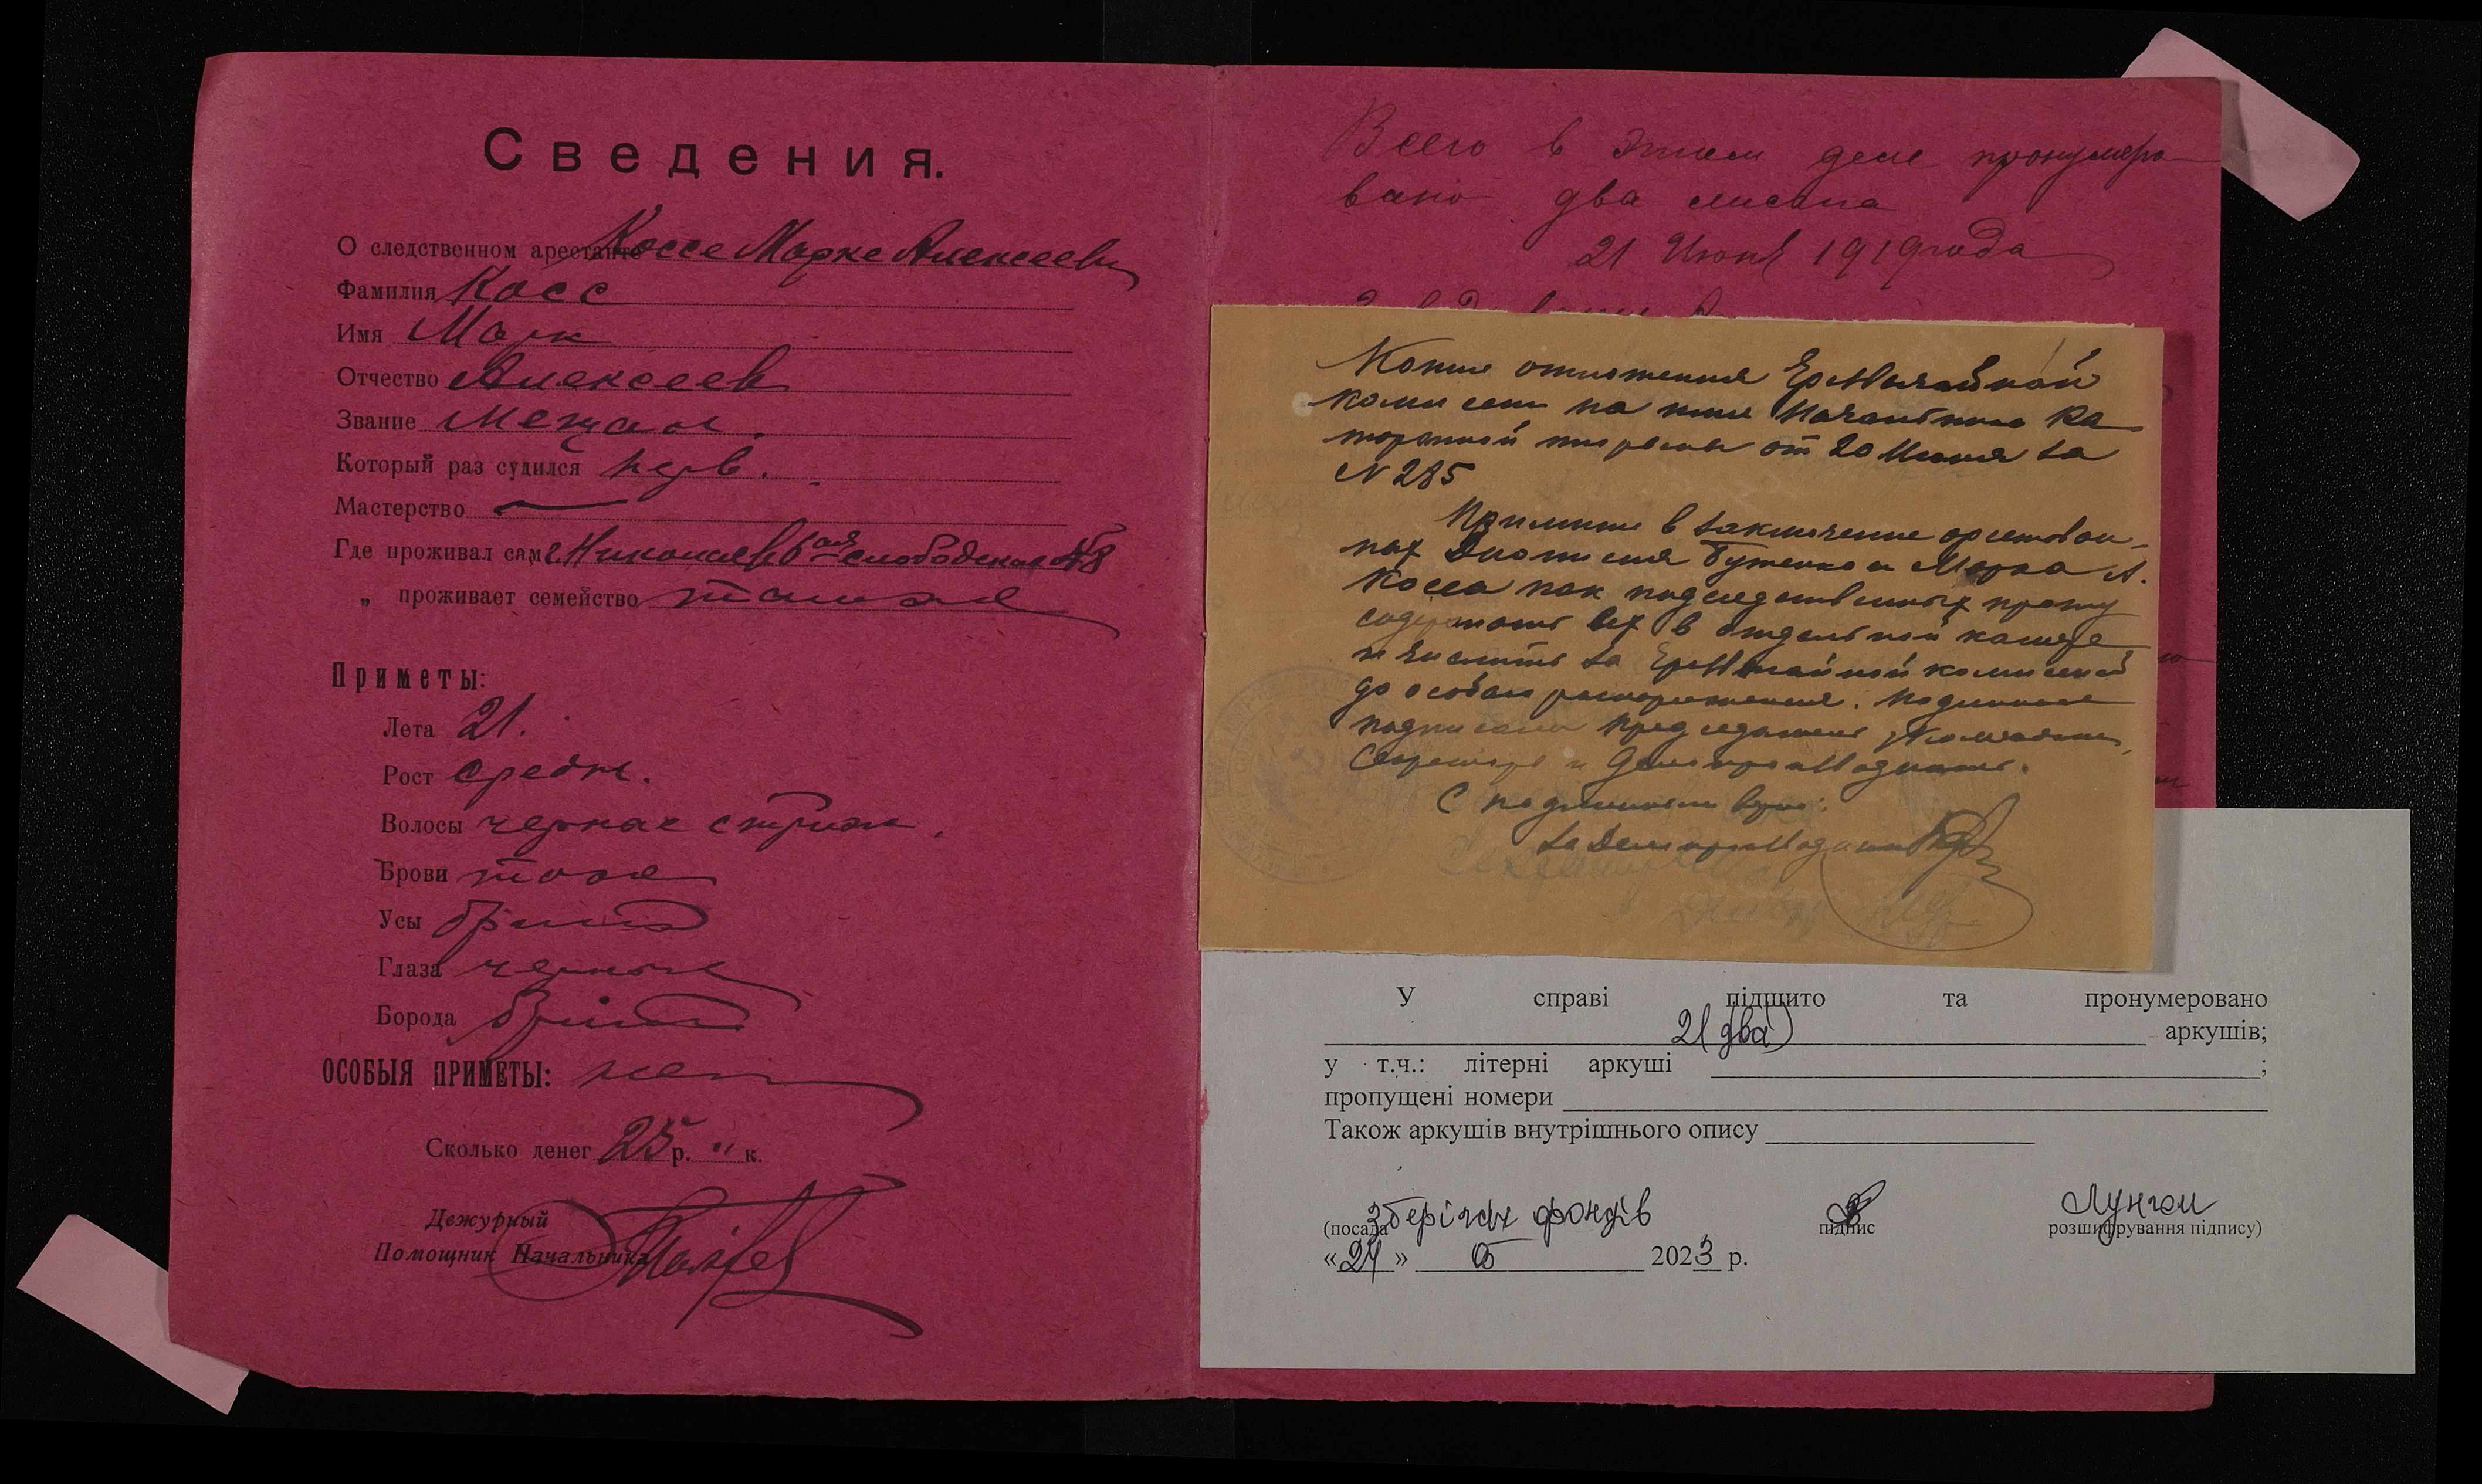 Сведения.
О следственном арестанте Коссе Марке Алексееве
Фамилия Косс
Имя Марк
Отчество Алексеев
Звание Мещан.
Который раз судился перв.
Мастерство —
Где проживал сам г. Николаев 6ая слободская №8
„ проживает семейство там же
Приметы:
Лета 21.
Рост средн.
Волосы черные стриж.
Брови тоже
Усы бриты
Глаза черные
Борода брита
ОСОБЫЯ ПРИМЕТЫ: нет
Сколько денег 25 р. " к.
Дежурный
Помощник Начальника
Всего в этом деле пронумеро
вано два листа
21 Июня 1919 года
Копие отношения Чрезвычайной
комиссии на имя Начальника Ка
торжной тюрьмы от 20 Июня за
№ 285
Примите в заключение арестован-
ных Дионисия Бутенко и Марка А.
Косса как подследственных прошу
содержать их в отдельной камере
и числить за Чрезвычайной комиссией
до особаго распоряжения. подлинное
подписали председатель,
Секретарь и Делопроизводитель.
С подлинным верно:
за Делопроизводителя
У справі підшито та пронумеровано
2 (два) аркушів;
у т.ч.: літерні аркуші ;
пропущені номери
Також аркушів внутрішнього опису
Зберігач фондів
(посада підпис розшифрування підпису)
«24» 05 2023 р.